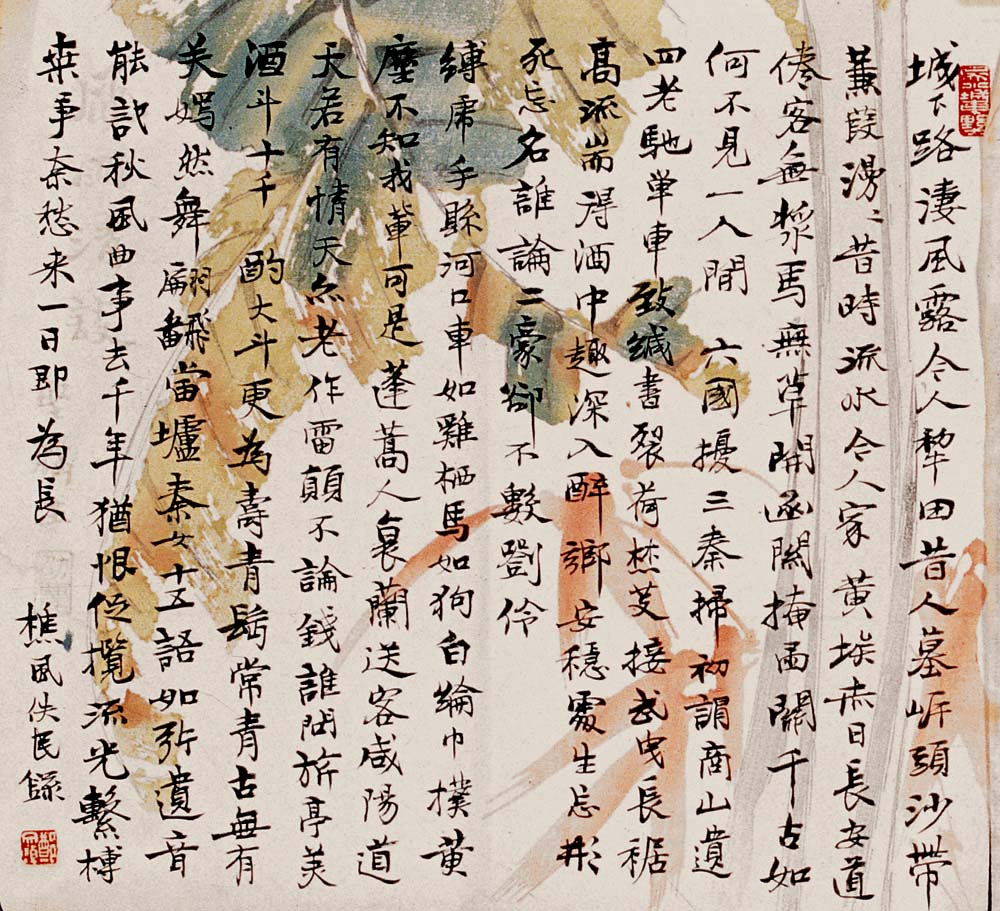 城下路淒風露今人犂田昔人墓岍頭沙帶
蒹葭漫〻昔時流水今人家黃埃赤日長安道
倦客無漿馬無草開函關掩函關千古如
何不見一人閒 六國擾三秦掃初謂商山遺
四老馳單車致緘書裂荷焚芰接武曳長裾
高流耑得酒中趣深入醉鄉安穩處生忘形
死忘名誰論二豪卻不數劉伶
縛虎手縣河口車如雞栖馬如狗白綸巾撲黃
塵不知我輩可是蓬蒿人衰蘭送客咸陽道
天若有情天亦老作雷顛不論錢誰問旂亭美
酒斗十千 酌大斗更為壽青鬢常青古無有
关嫣然舞翩飜當壚秦女十五語如弦遺音
能記秋風曲事去千年猶恨促攬流光繫榑
桒事奈愁来一日即為長
樵風佚民錄